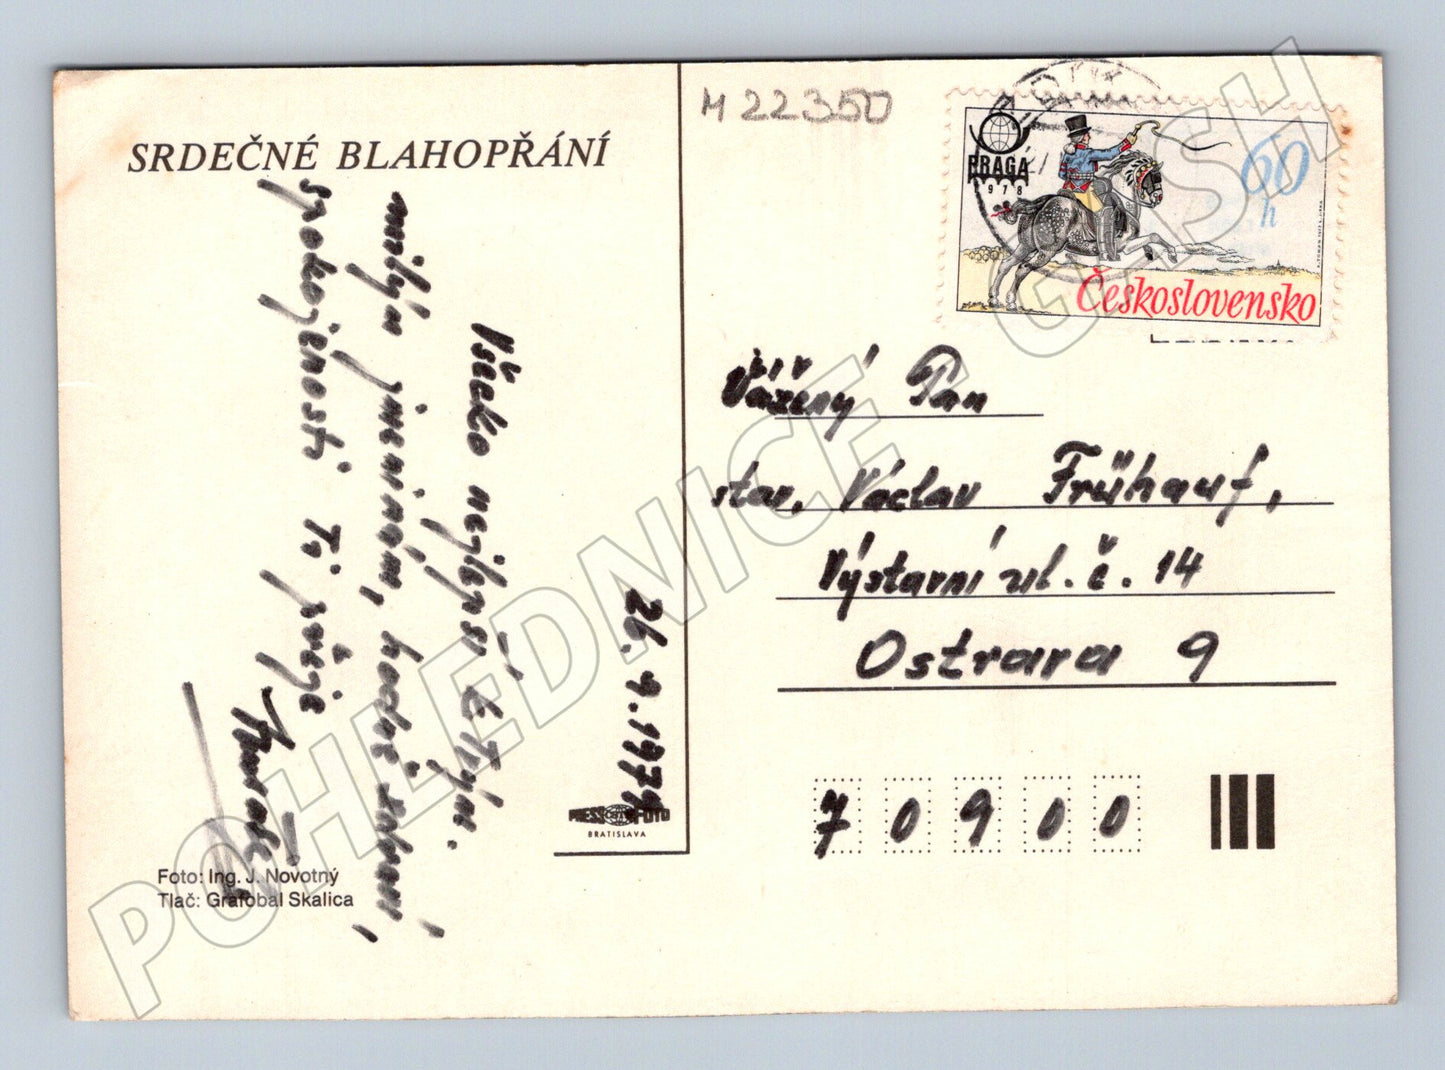 M 22350
SRDEČNÉ BLAHOPŘÁNÍ
PRAGA
1978
60
h
Československo
26. 9. 1979
Všecko nejlepší k Tvým
milým jmeninám, hodně zdraví,
spokojenosti Ti přeje
Vážený Pan
star. Václav Frühauf,
Výstavní ul. č. 14
Ostrava 9
70900
PRESSFOTO
BRATISLAVA
Foto: Ing. J. Novotný
Tlač: Grafobal Skalica
POHLEDNICE - CASH